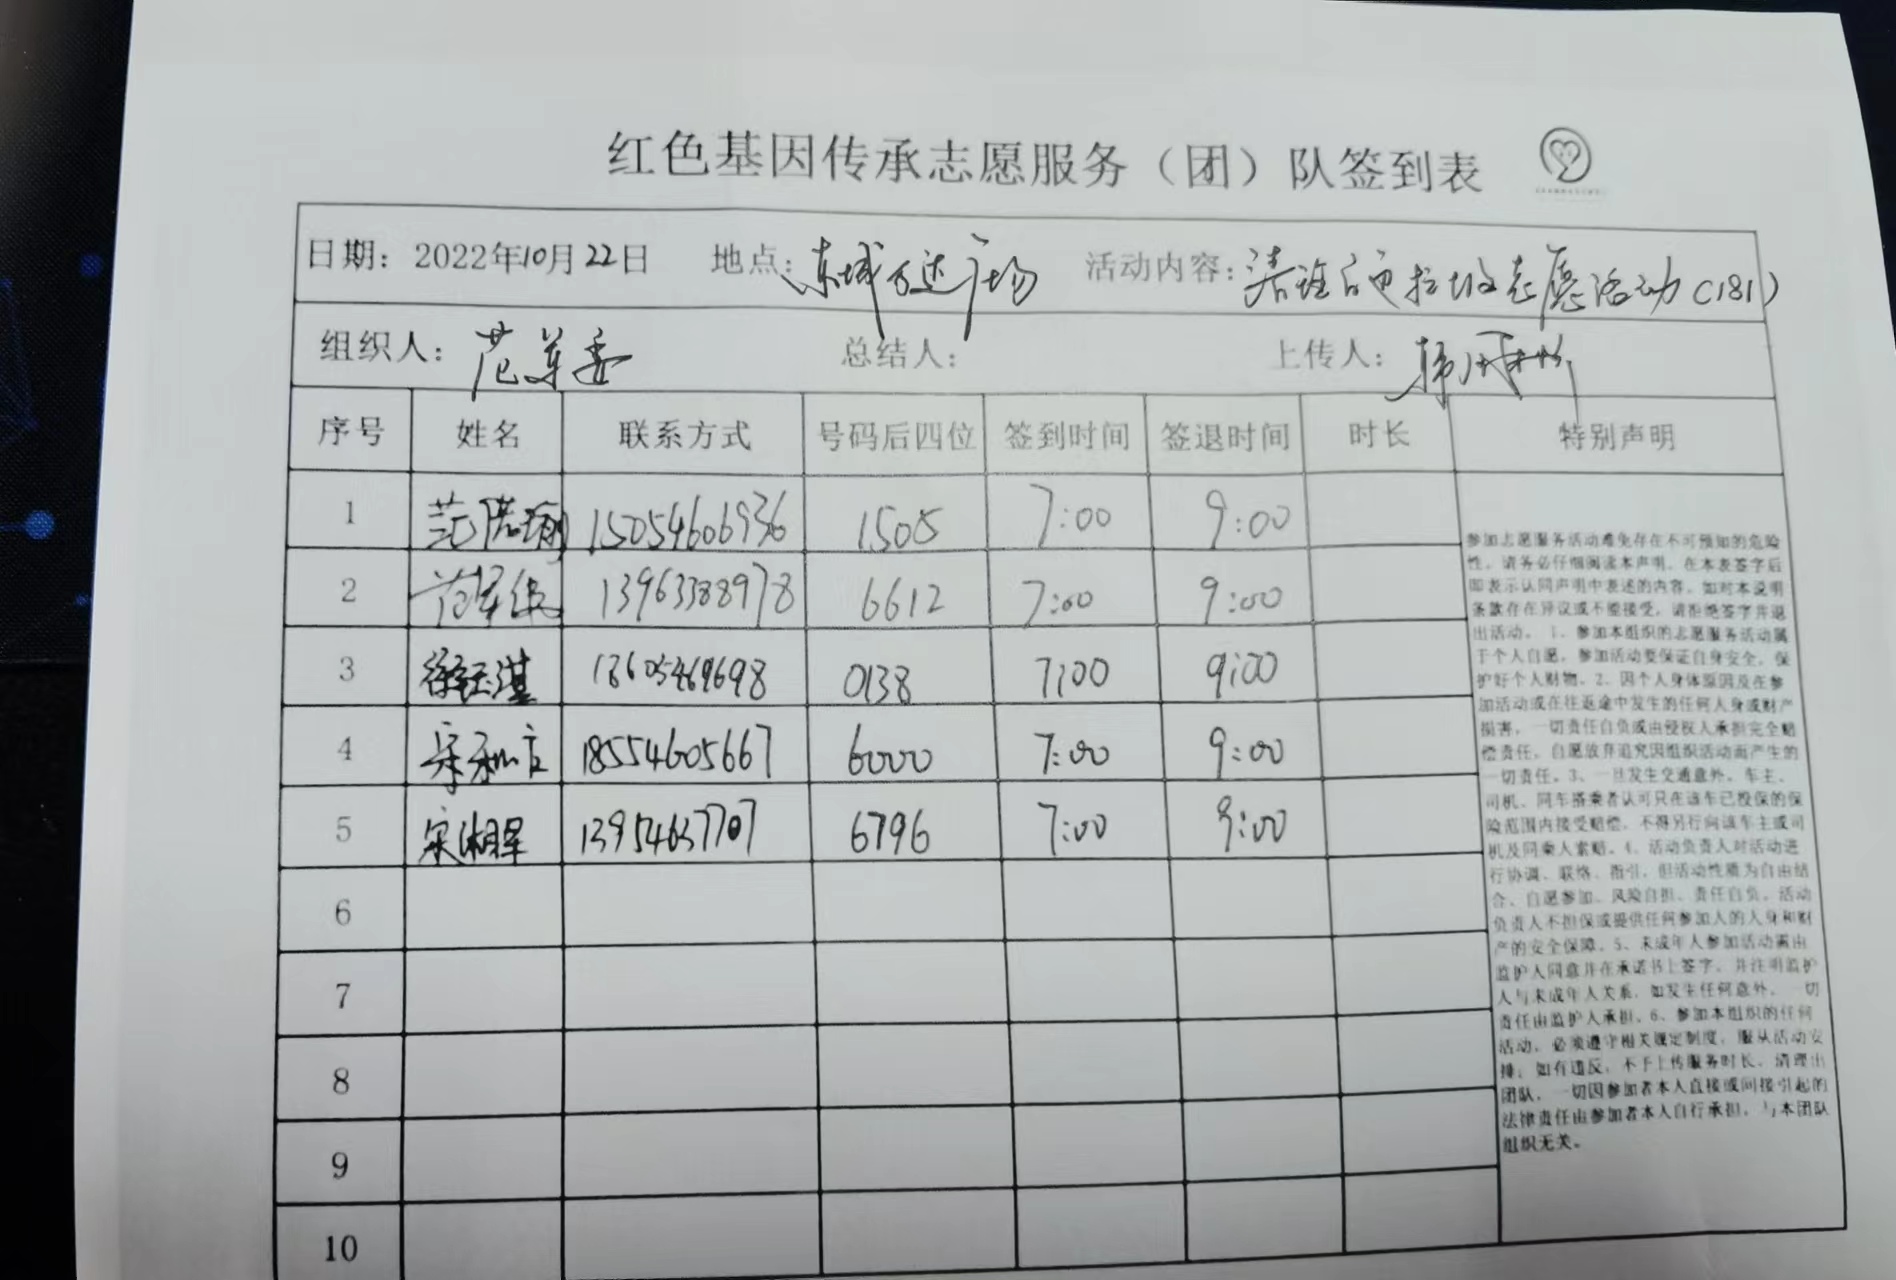 红色基因传承志愿服务（团）队签到表
日期：2022年10月22日 地点：东城万达广场 活动内容：清理白色垃圾志愿活动（181）
组织人：范军委 总结人： 上传人：韩
序号 姓名 联系方式 号码后四位 签到时间 签退时间 时长 特别声明
1 15054606936 1505 7:00 9:00
2 13963388978 6612 7:00 9:00
3 徐钰淇 18605469698 0138 7:00 9:00
4 18554605667 6000 7:00 9:00
5 宋湘军 13954637707 6796 7:00 9:00
6
7
8
9
10
参加志愿服务活动难免存在不可预知的危险
性，请务必仔细阅读本声明，在本表签字后
即表示认同声明中表述的内容，如对本说明
条款存在异议或不能接受，请拒绝签字并退
出活动。1、参加本组织的志愿服务活动属
于个人自愿，参加活动要保证自身安全，保
护好个人财物。2、因个人身体原因及在参
加活动或在往返途中发生的任何人身或财产
损害，一切责任自负或由侵权人承担完全赔
偿责任，自愿放弃追究因组织活动而产生的
一切责任。3、一旦发生交通意外，车主、
司机、同车搭乘者认可只在该车已投保的保
险范围内接受赔偿，不得另行向该车主或司
机及同乘人索赔。4、活动负责人对活动进
行协调、联络、指引，但活动性质为自由结
合、自愿参加、风险自担、责任自负，活动
负责人不担保或提供任何参加人的人身和财
产的安全保障。5、未成年人参加活动需由
监护人同意并在承诺书上签字，并注明监护
人与未成年人关系，如发生任何意外，一切
责任由监护人承担。6、参加本组织的任何
活动，必须遵守相关规定制度，服从活动安
排，如有违反，不予上传服务时长，清理出
团队，一切因参加者本人直接或间接引起的
法律责任由参加者本人自行承担，与本团队
组织无关。